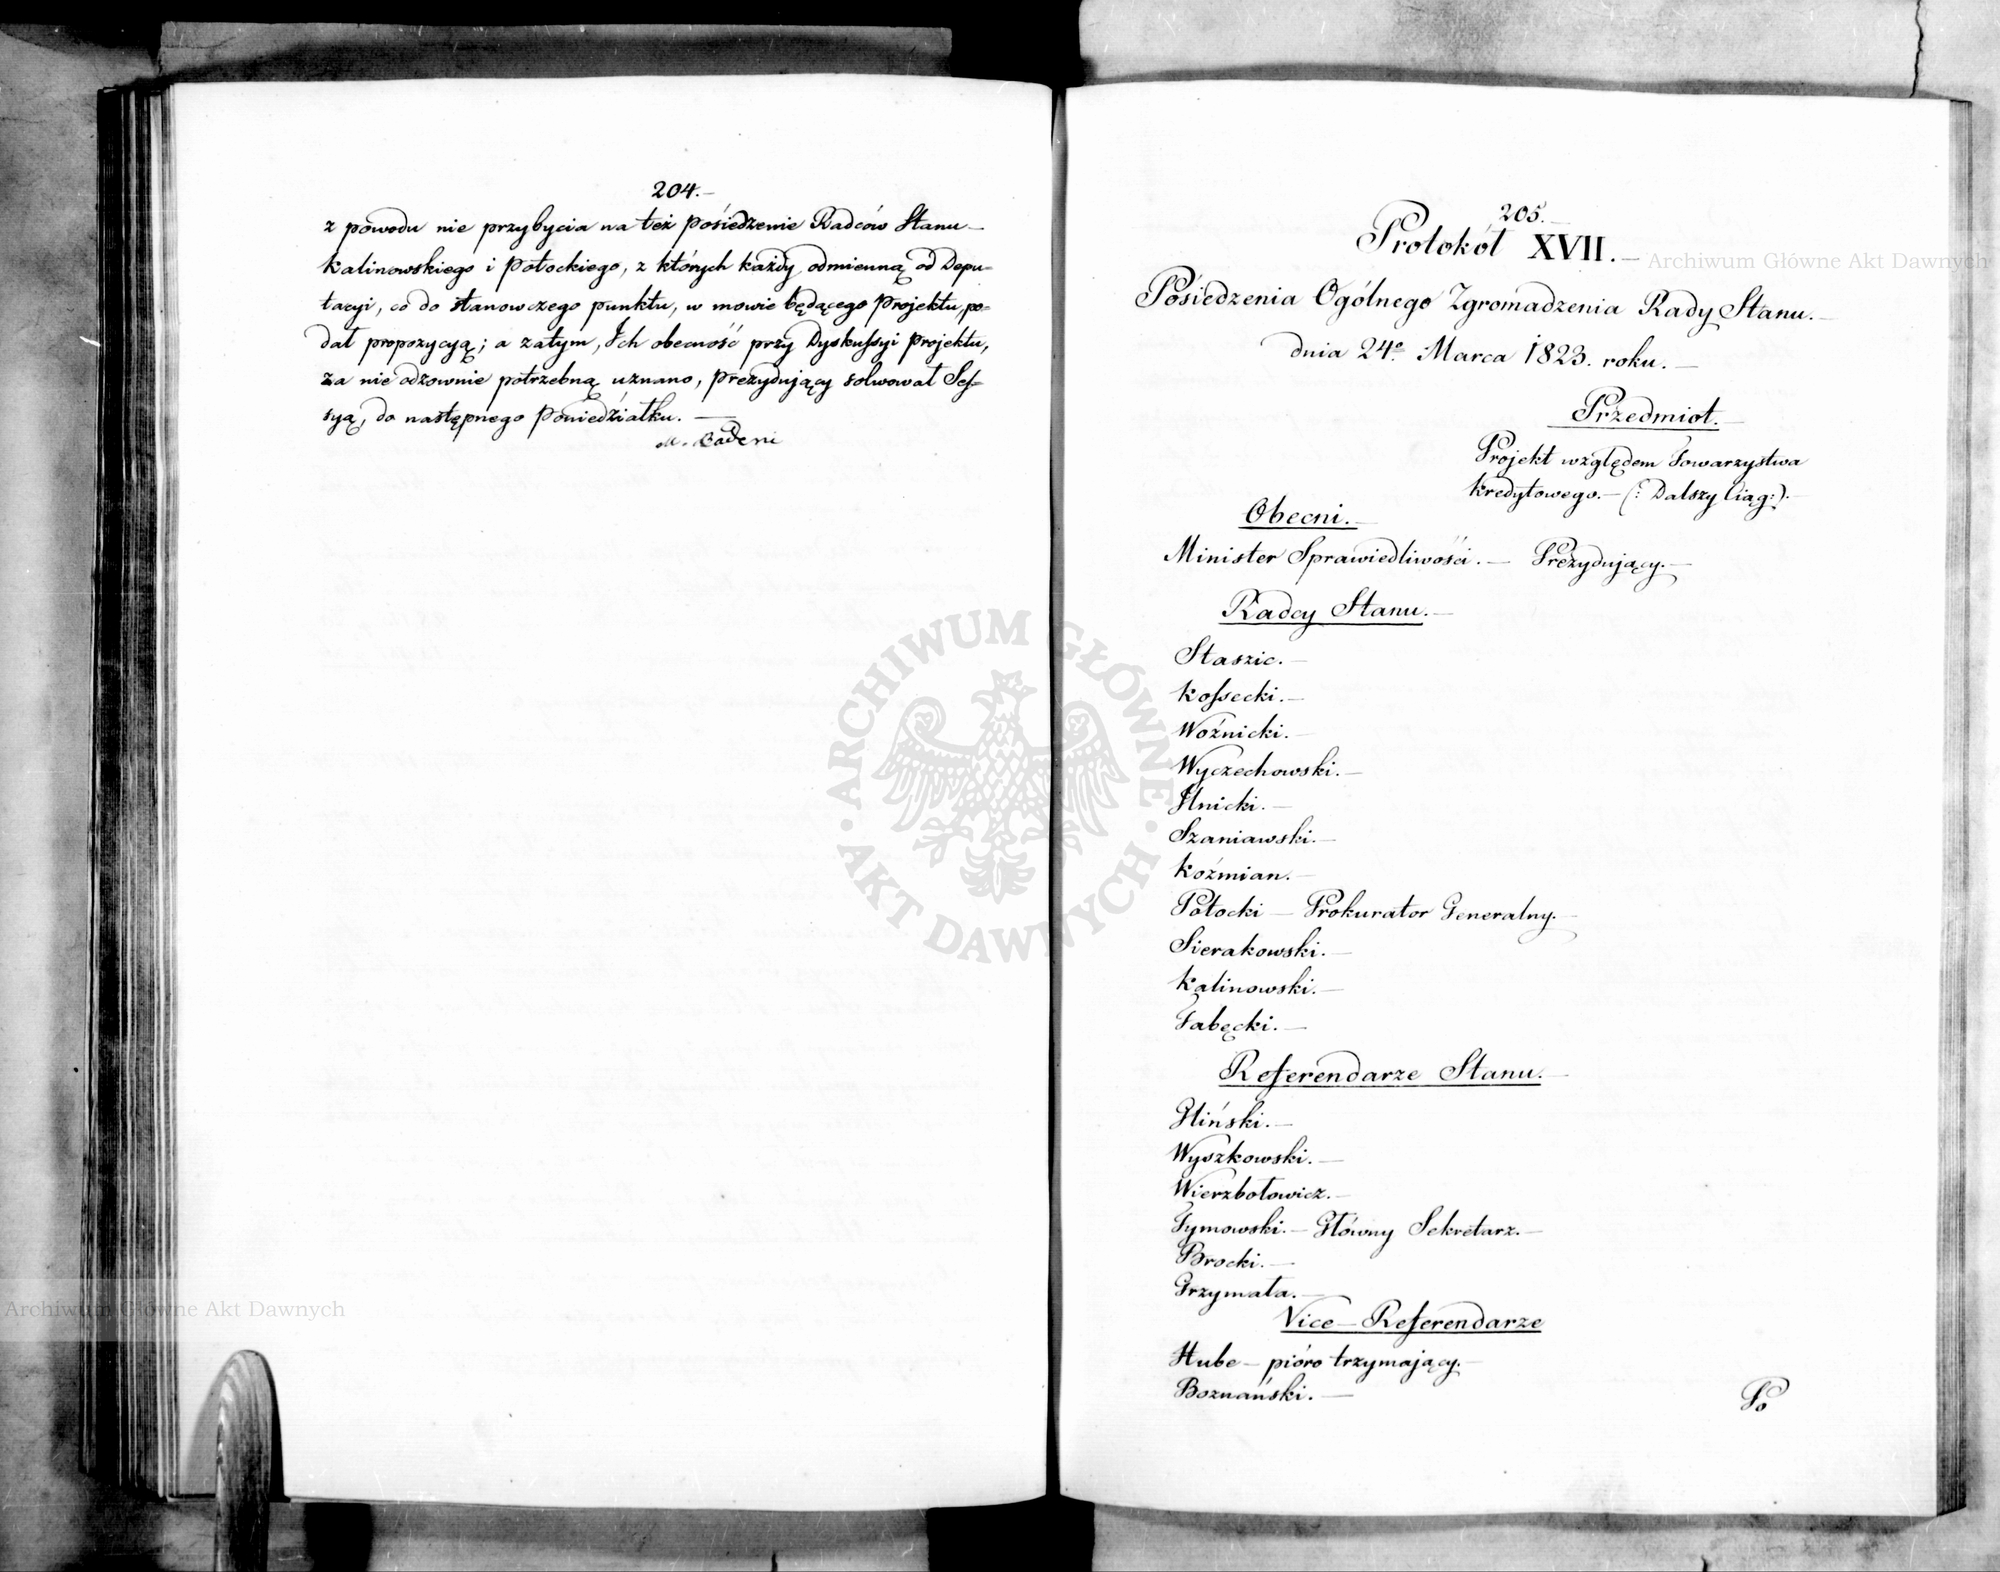 204.–
z powodu nie przybycia na też Posiedzenie Radców Stanu –
Kalinowskiego i Potockiego, z których każdy odmienną od Depu-
tacyi, co do stanowczego punktu, w mowie będącego Projektu, po-
dał propozycyą; a zatym, Ich obecność przy Dyskussyi Projektu,
za nie odzownie potrzebną uznano, Prezydujący solwował Ses-
syą, do następnego Poniedziałku. —
M. Badeni
205.–
Protokół XVII.–
Posiedzenia Ogólnego Zgromadzenia Rady Stanu.–
dnia 24º Marca 1823. roku.–
Przedmiot.–
Projekt względem Towarzystwa
Kredytowego.– (: Dalszy Ciąg:).–
Obecni.–
Minister Sprawiedliwości.– Prezydujący.–
Radcy Stanu.–
Staszic.–
Kossecki.–
Woźnicki.–
Wyczechowski.–
Ilnicki.–
Szaniawski.–
Koźmian.–
Potocki – Prokurator Generalny.–
Sierakowski.–
Kalinowski.–
Tabęcki.–
Referendarze Stanu.–
Gliński.–
Wyszkowski.–
Wierzbołowicz.–
Tymowski.– Główny Sekretarz.–
Brocki.–
Grzymała.–
Vice – Referendarze
Hube – pióro trzymający.–
Boznański.–
Po
Archiwum Główne Akt Dawnych
ARCHIWUM GŁÓWNE · AKT DAWNYCH ·
Archiwum Główne Akt Dawnych